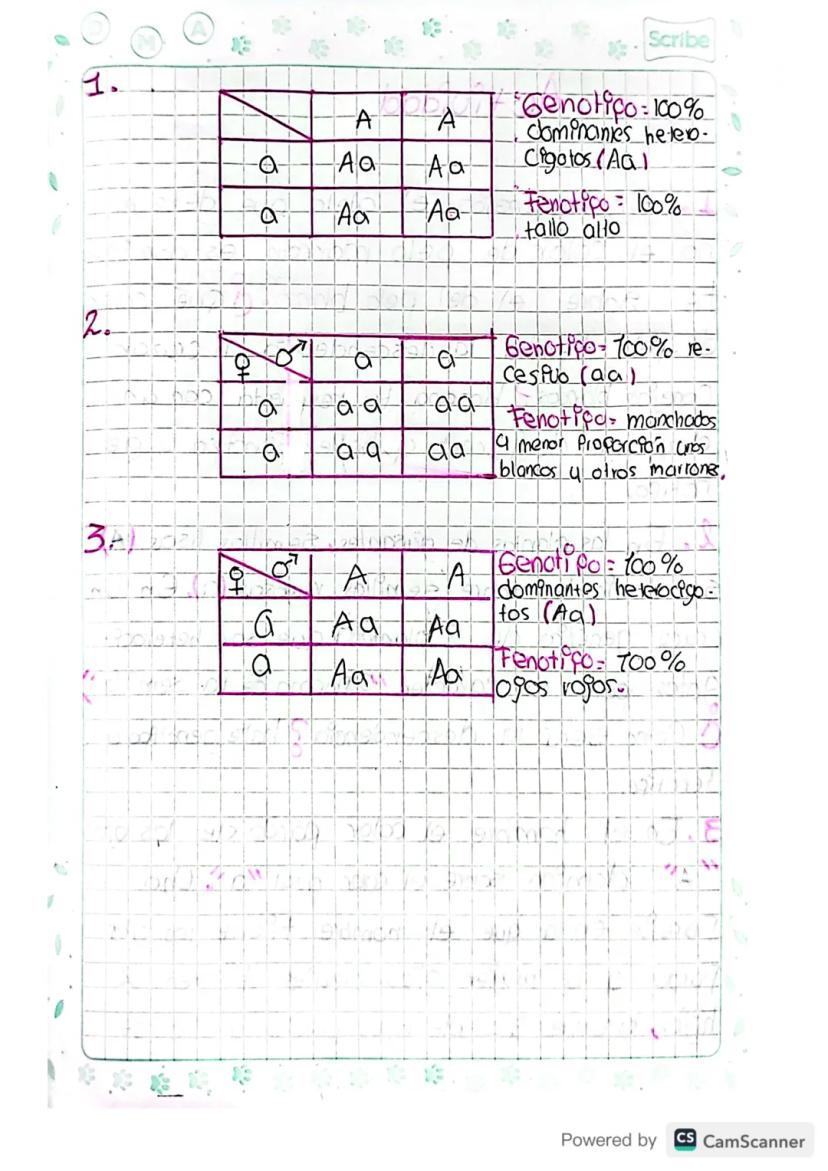 Scribe
1.
A A
a Aa Aa
a Aa Aa
Genotipo = 100%
dominantes hetero-
cigotos (Aa)
Fenotipo = 100%
tallo alto
2.
♀ ♂ a a
a aa aa
a aa aa
Genotipo = 100% re-
cesivo (aa)
Fenotipo = manchados
a menor proporción unos
blancos y otros marrones.
3.
♀ ♂ A A
a Aa Aa
a Aa Aa
Genotipo = 100%
dominantes heterocigo-
tos (Aa)
Fenotipo = 100%
ojos rojos.
Powered by CS CamScanner